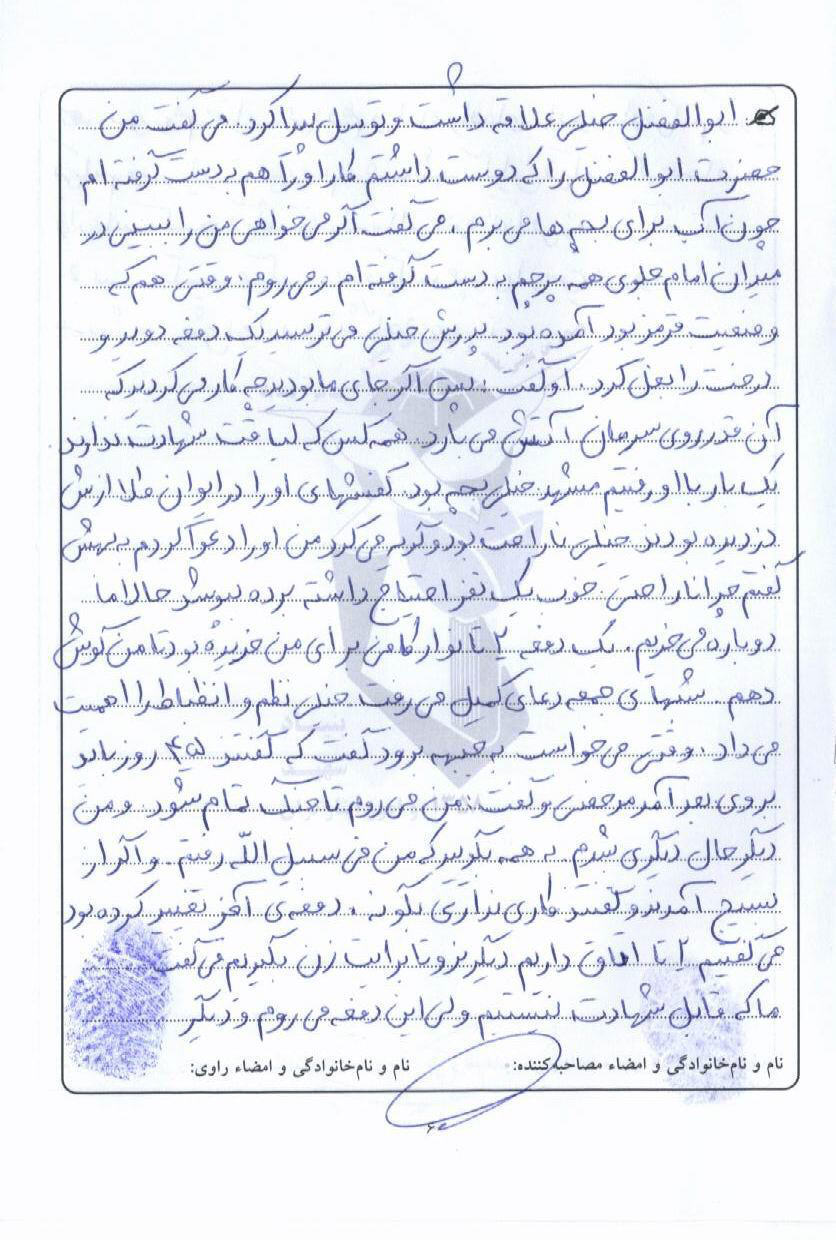 ۵
ابوالفضل خیلی علاقه داشت و توسل پیدا کرد. می گفت من
حضرت ابوالفضل را که دوست داشتم کار او را هم به دست گرفته ام
چون آب برای بچه ها می برم. می گفت اگر می خواهی من را ببینی در
میدان امام جلوی همه پرچم به دست گرفته ام و می روم. وقتی هم که
وضعیت قرمز بود آمده بود پدرش خیلی می ترسید یک دفعه دوید و
درخت را بغل کرد. او گفت: پس اگر جای ما بودید چه کار می کردید که
آن قدر روی سرمان آتش می بارد. همه کس که لیاقت شهادت ندارند
یک بار با او رفتیم مشهد خیلی بچه بود. کفشهای او را در ایوان طلا ازش
دزدیده بودند خیلی ناراحت بود و گریه می کرد من او را دعوا کردم بهش
گفتم چرا ناراحتی خوب یک نفر احتیاج داشته برده بپوشد حالا ما
دوباره می خریم. یک دفعه ۲ تا نوار کافی برای من خریده بود تا من گوش
دهم. شبهای جمعه دعای کمیل می رفت خیلی نظم و انظباط را اهمیت
می داد. وقتی می خواست به جبهه برود گفت که گفتند ۴۵ روز باید
بروی بعد آمد مرخصی و گفت من می روم تا جنگ تمام شود و من
دیگر حال دیگری شدم به همه بگویید که من فی سبیل اللّه رفتم و اگر از
بسیج آمدند و گفتند کاری نداری بگو نه. دفعه ی آخر تغییر کرده بود
می گفتیم ۲ تا اتاق داریم دیگر نرو تا برایت زن بگیریم می گفت
ما که قابل شهادت نیستیم ولی این دفعه می روم و دیگر
نام و نام‌خانوادگی و امضاء مصاحبه‌کننده: نام و نام‌خانوادگی و امضاء راوی:
۶